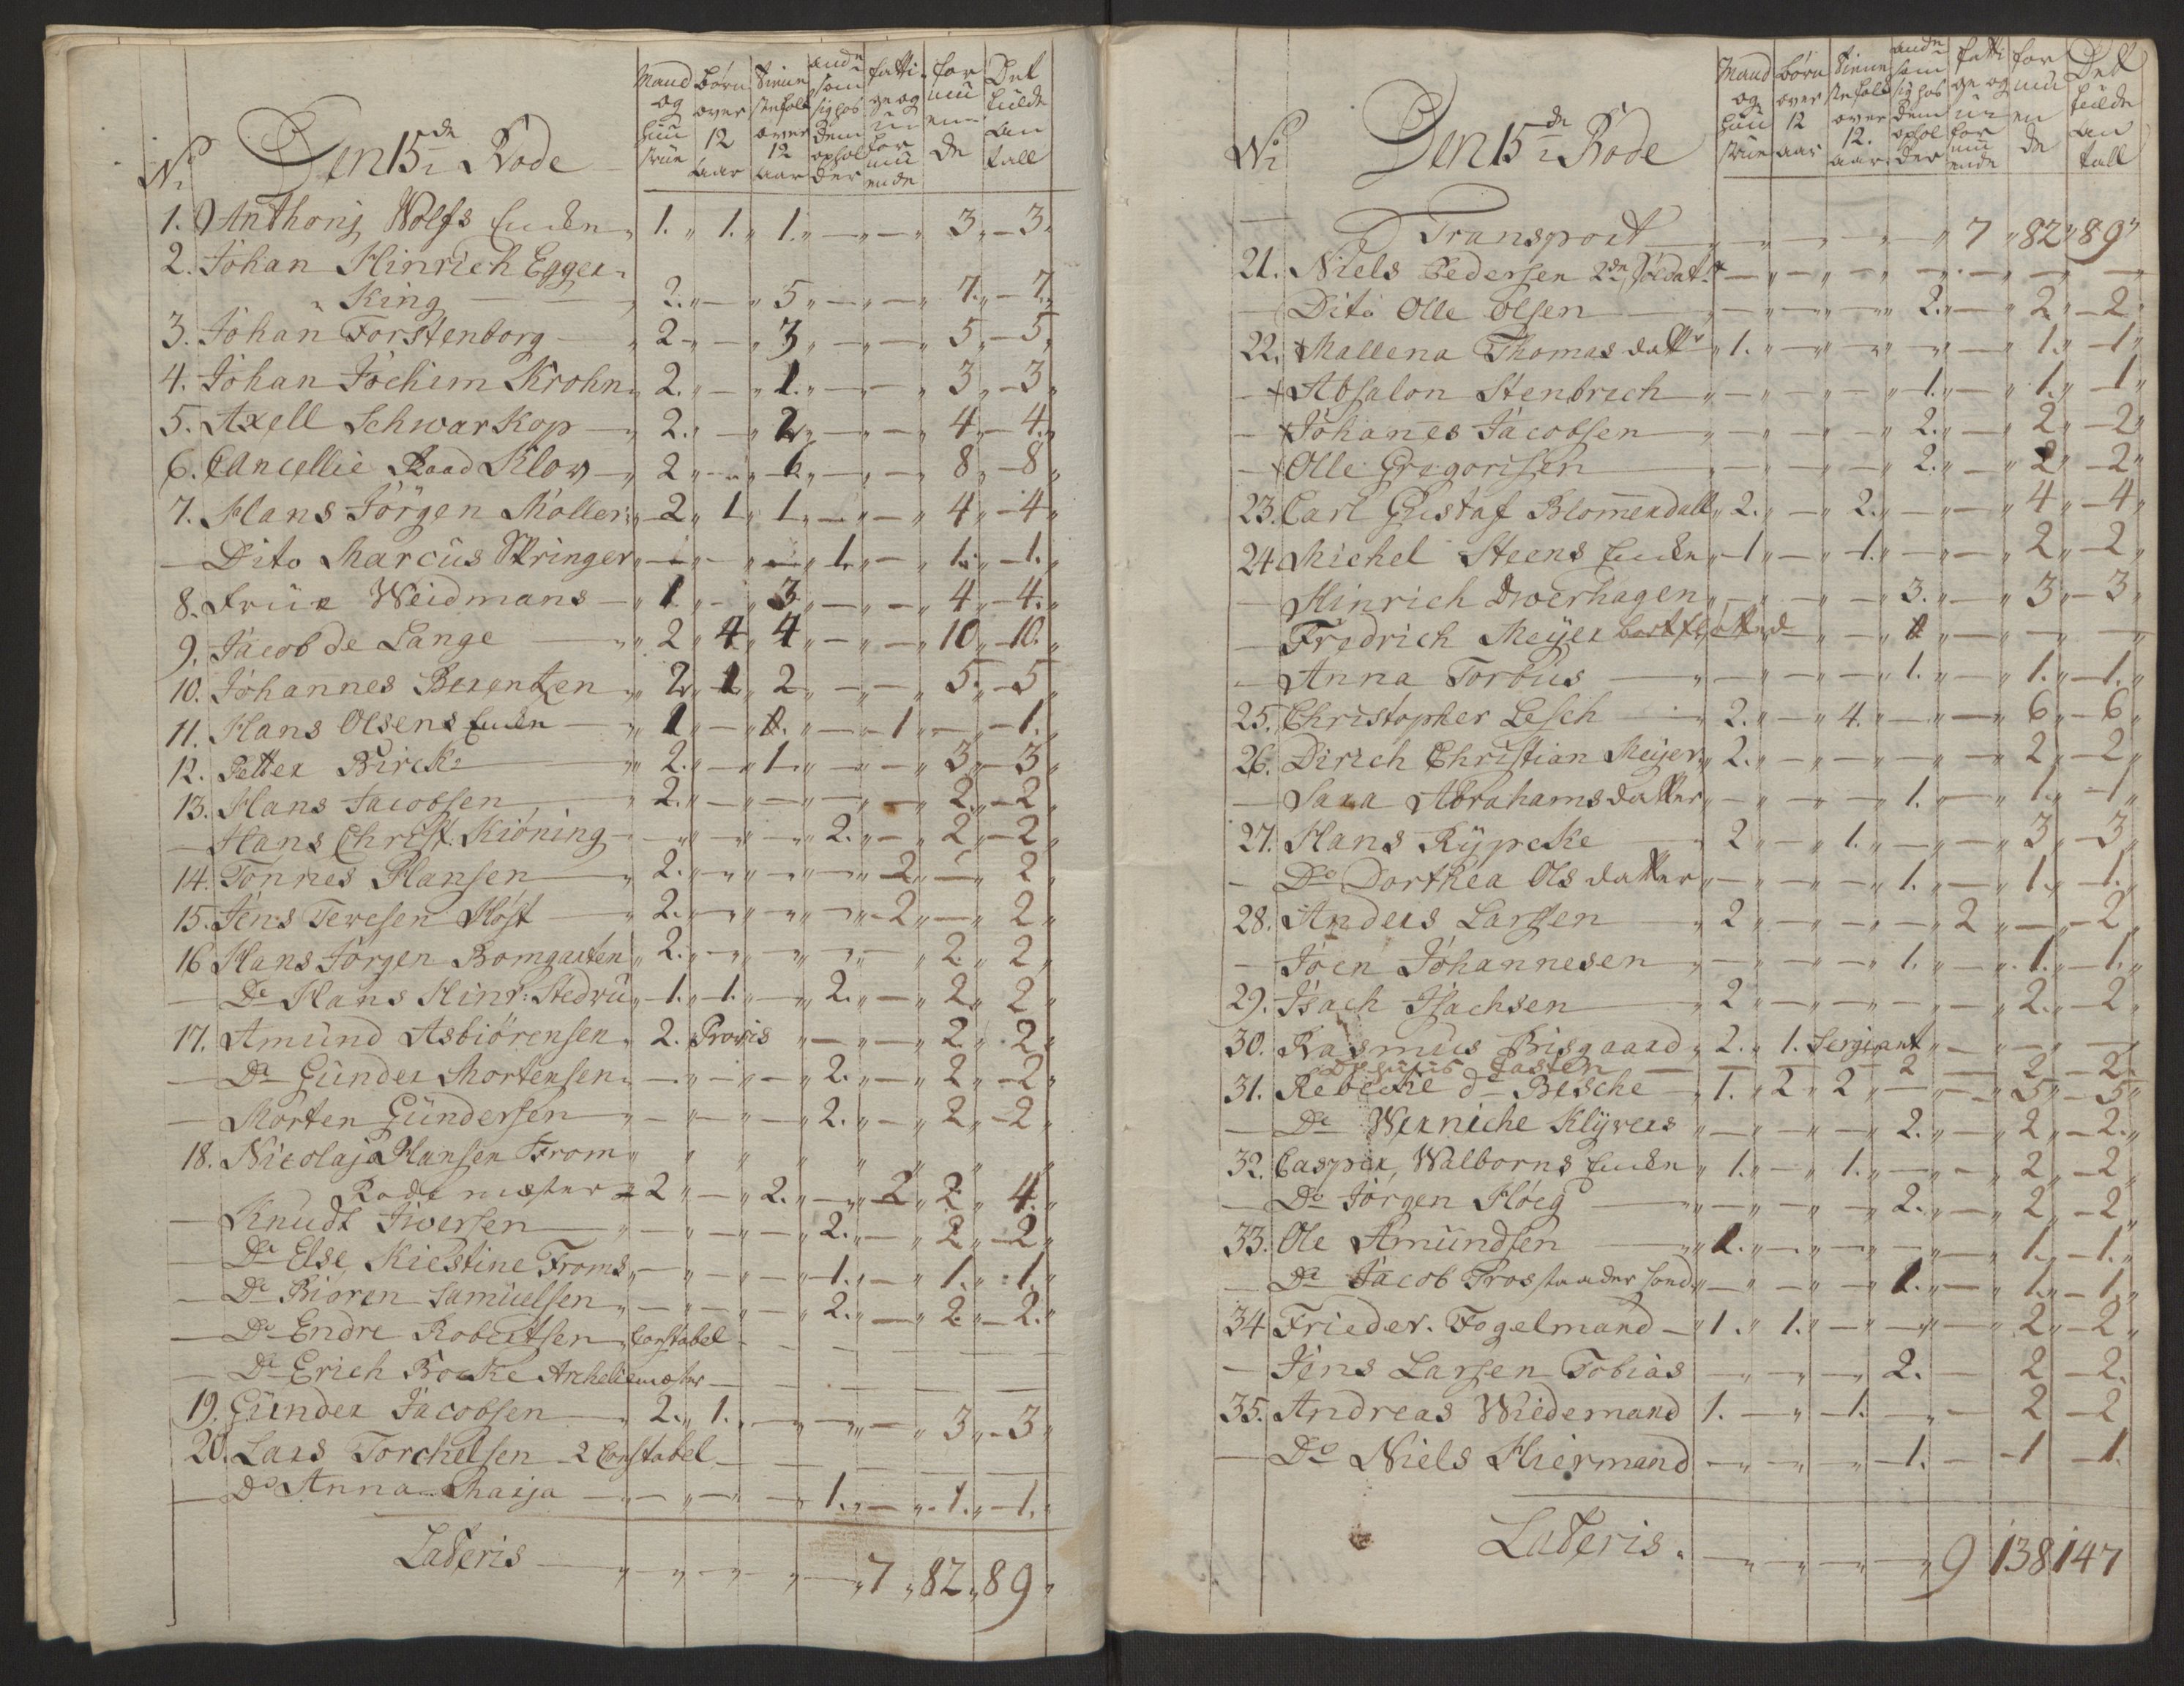 Mand og Hustrue | Børn over 12 Aar | Tienestefolk over 12 Aar | andre som sig hos dem opholder | fattige og uformuende | formuende | Det fulde Antall
No Den 15de Rode
1. Anthonj Wolfs Enken 1. 1. 1. — — 3 — 3
2. Johan Hinrich Egger-
King 2. — 5 — — 7 — 7
3. Johan Forstenborg 2 — 3 — — 5 — 5
4. Johan Jochim Krohn 2. — 1. — — 3 — 3
5. Axell Schwarkop 2. — 2 — — 4 — 4
6. Cancellie Raad Klow 2 — 6 — — 8 — 8
7. Hans Jörgen Møller 2 1 1 — — 4 — 4
— Dito Marcus Springer — — — 1. — 1. — 1.
8. Frue Weidmans 1 — 3 — — 4 — 4.
9. Jacob de Lange 2 4 4 — — 10 — 10.
10. Johannes Berentzen 2 1 2 — — 5 — 5
11. Hans Olsens Enken 1 — — — 1 — — 1.
12. Petter Birck 2. — 1. — — 3 — 3
13. Hans Jacobsen 2. — — — — 2 — 2
— Hans Christ. Kiöning — — — 2. — 2 — 2
14. Tönnes Hansen 2. — — — 2 — 2
15. Jens Teresen Høst 2. — — — 2 — 2
16 Hans Jörgen Bomgarten 2. — — — — 2. 2
— Do Hans Hinr: Stedru 1. 1. — 2. — 2 2
17. Amund Asbiörensen 2. Provis — — 2. 2
— Do Gunder Mortensen — — — 2. — 2 — 2
— Morten Gundersen — — — 2. — 2 — 2
18. Nicolaja Hansen From
Rode mester 2 — 2. — 2 2 4.
— Knudt Iversen — — — 2. — 2 — 2
— Do Else Kiestine Froms — — — 1. — 1. 1.
— Do Biören Samuelsen — — — 2. — 2. — 2.
— Do Endre Robertsen Constabel — — — —
— Do Erich Bocke Arkeliemester — — — —
19. Gunder Jacobsen 2. 1. — — — 3 — 3
20. Lars Torchelsen 2 Constabel — — — —
— Do Anna Maija — — — 1. — 1. — 1.
Lateris — — — — 7 82 89
Mand og Hustrue | Børn over 12 aar | Tienestefolk over 12. aar | andre som sig hos dem opholder | fattige og uformuende | formuende | Det fulde Antall
No Den 15de Rode
Transport — — — — 7 82 89
21. Niels Pedersen 2den Soldat — — — — — — —
— Dito Olle Olsen — — — 2. — 2 — 2
22. Mallena Thomasdatter 1. — — — — 1. — 1
— Absalon Stenbrich — — — 1. — 1. 1
— Johanes Jacobsen — — — 2. — 2 — 2
— Olle Gregorisen — — — 2. — 2 — 2
23. Carl Gustaf Blomendall 2. — 2. — — 4 — 4
24 Michel Steens Enken 1 — 1. — — 2 — 2
— Hinrich Dwerhagen — — — 3. — 3 — 3
— Fredrich Meyer bortflötted — — — — — —
— Anna Torbus — — — 1. — 1. — 1.
25. Christopher Lesch 2. — 4. — — 6 — 6
26. Dirich Christian Meyer 2. — — — — 2 — 2
— Sara Abrahamsdatter — — — 1. — 1. — 1
27. Hans Rypcke 2 — 1. — — 3 — 3
— Do Dorthea Olsdatter — — — 1. — 1. 1.
28. Anders Larssen 2 — — — 2 — — 2
— Joen Johannesen — — — 1. — 1. — 1.
29. Isach Isachsen 2 — — — — 2. — 2
30. Rasmus Bisgaard 2. 1. Sergiant — — —
Casten — — — 2 — 2 — 2
31. Rebecke de Besche 1. 2 2 — — 5 — 5
— Do Werniche Klyvers — — — 2. — 2 — 2.
32. Casper Walborns Enken 1. — 1. — — 2 — 2
— Do Jörgen Höeg — — — 2. — 2 — 2
33. Ole Amundsen 1. — — — — 1. — 1.
— Do Jacob Trostaadersond — — — 1. — 1. — 1.
34 Frieder. Fogelmand 1. 1. — — — 2 — 2
— Jens Larsen Tobias — — — 2. — 2 — 2.
35. Andreas Wiedemand 1. — 1. — — 2 — 2
— Do Niels Hiermand — — — 1. — 1 — 1.
Lateris. — — — — 9 138 147